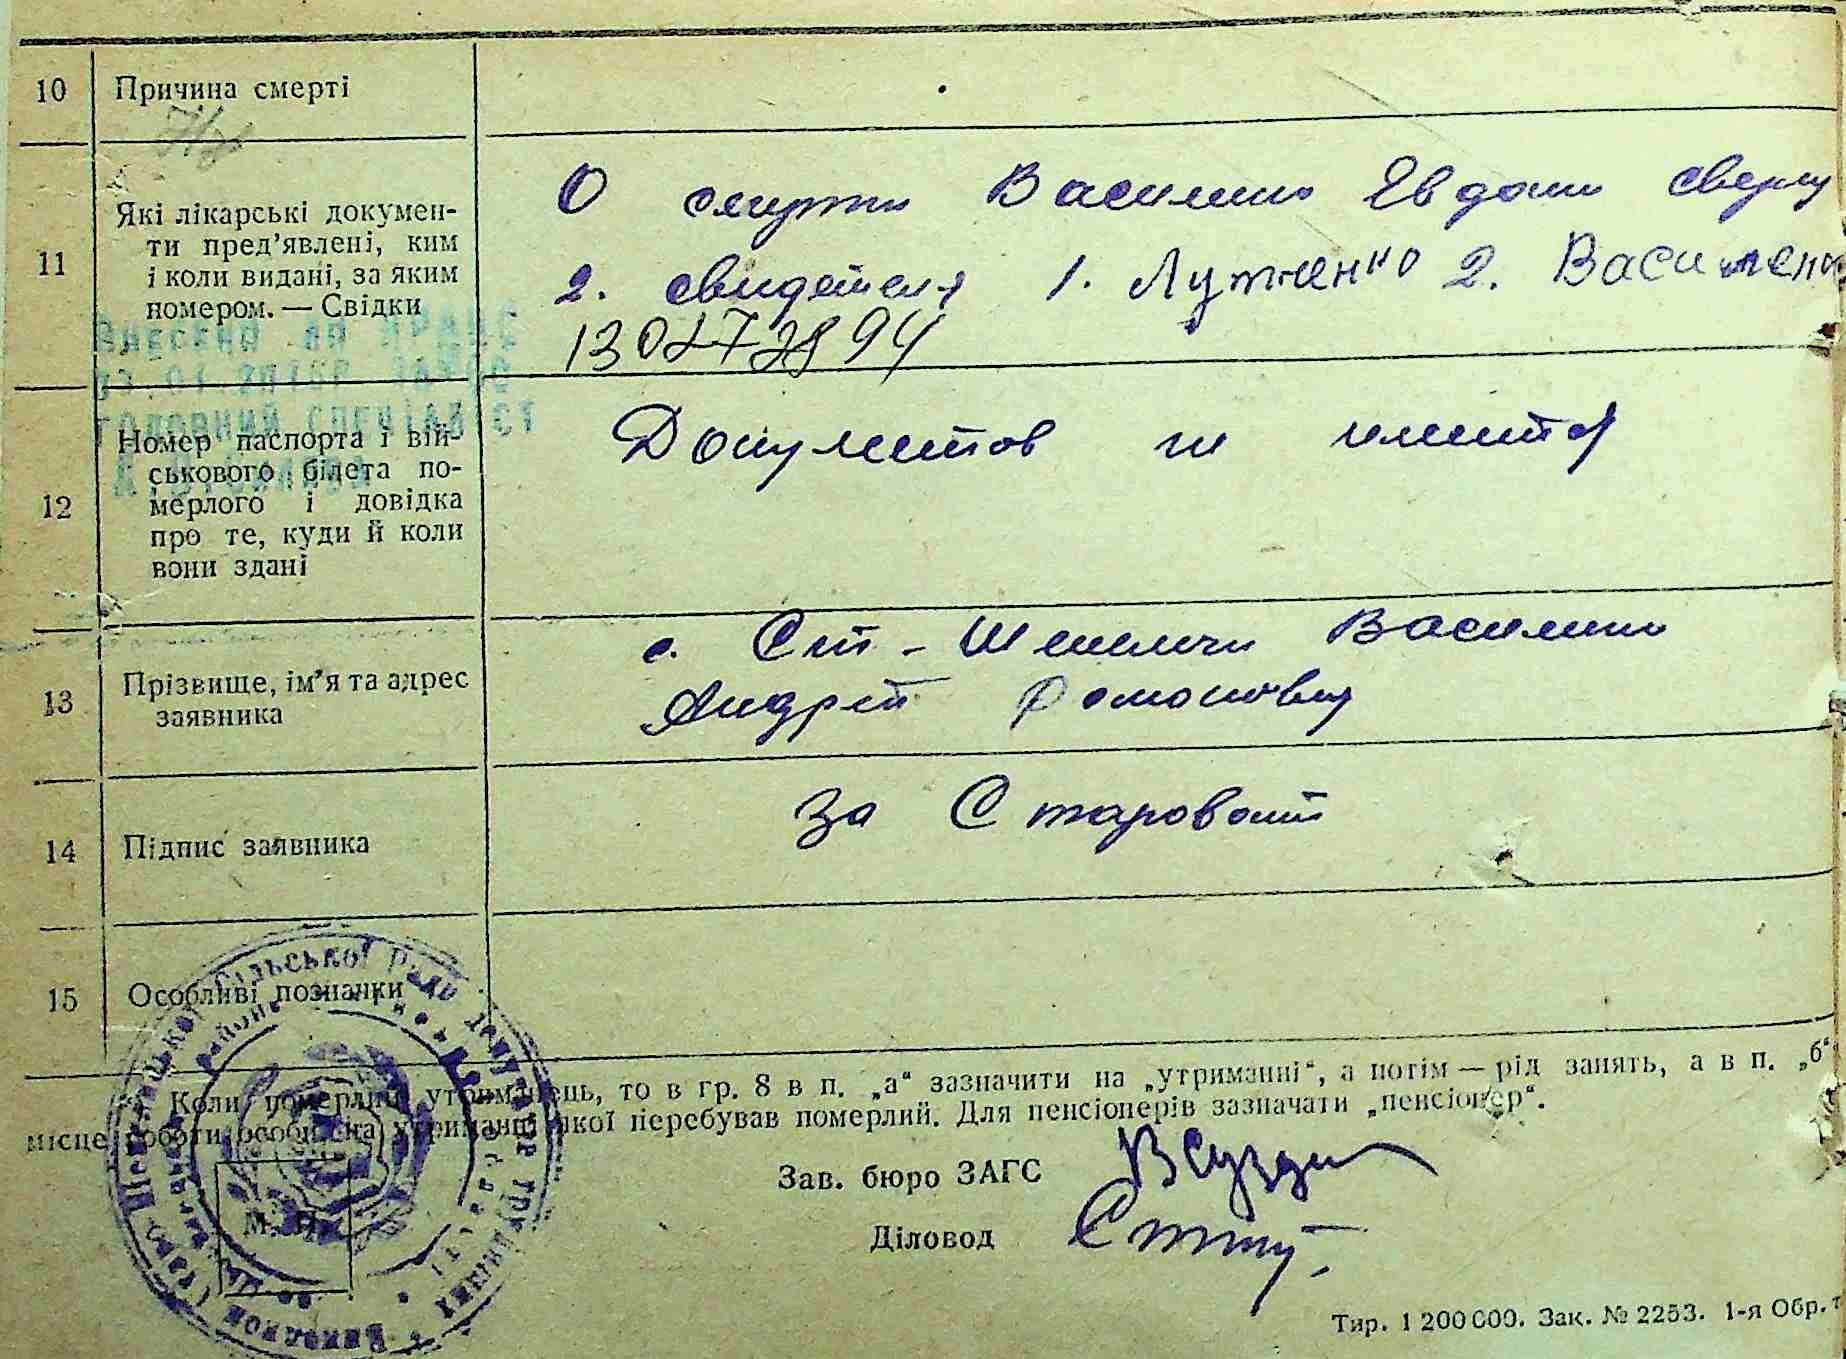 10 Причина смерті
11 Які лікарські докумен-
ти пред'явлені, ким
і коли видані, за яким
номером. — Свідки
О смерти Василенко Евдоки
2. свидетеля 1. Лутченко 2. Василенко
ГОЛОВНИЙ СПЕЦІАЛІСТ
12 Номер паспорта і вій-
ськового білета по-
мерлого і довідка
про те, куди й коли
вони здані
Документов не имеится
13 Прізвище, ім'я та адрес
заявника
с. Ст-Шепеличи Василенко
Андрей Романович
14 Підпис заявника
За Старовойт
15 Особливі позначки
Коли померлий утриманець, то в гр. 8 в п. „а“ зазначити на „утриманні“, а потім — рід занять, а в п. „б“
місце роботи особи, на утриманні якої перебував померлий. Для пенсіонерів зазначати „пенсіонер“.
М. П.
Зав. бюро ЗАГС
Діловод
Тир. 1 200 000. Зак. № 2253. 1-я Обр. т